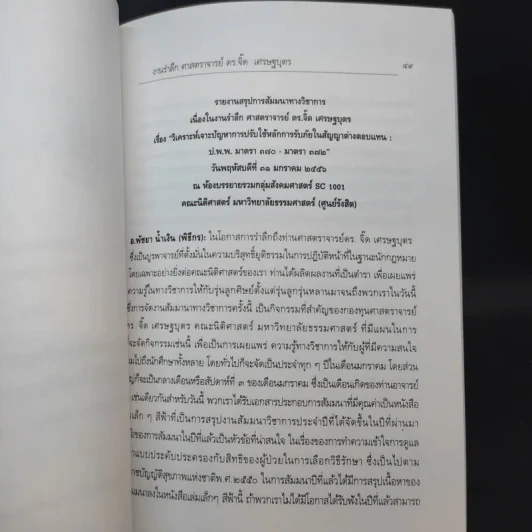 งานรำลึก ศาสตราจารย์ ดร.จี๊ด เศรษฐบุตร ๔๙
รายงานสรุปการสัมมนาทางวิชาการ
เนื่องในงานรำลึก ศาสตราจารย์ ดร.จี๊ด เศรษฐบุตร
เรื่อง "วิเคราะห์เจาะปัญหาการปรับใช้หลักการรับภัยในสัญญาต่างตอบแทน :
ป.พ.พ. มาตรา ๓๗๐ - มาตรา ๓๗๒"
วันพฤหัสบดีที่ ๓๑ มกราคม ๒๕๕๖
ณ ห้องบรรยายรวมกลุ่มสังคมศาสตร์ SC 1001
คณะนิติศาสตร์ มหาวิทยาลัยธรรมศาสตร์ (ศูนย์รังสิต)
อ.พัชยา น้ำเงิน (พิธีกร): ในโอกาสการรำลึกถึงท่านศาสตราจารย์ดร. จี๊ด เศรษฐบุตร
ซึ่งเป็นบูรพาจารย์ที่ตั้งมั่นในความบริสุทธิ์ยุติธรรมในการปฏิบัติหน้าที่ในฐานะนักกฎหมาย
โดยเฉพาะอย่างยิ่งต่อคณะนิติศาสตร์ของเรา ท่านได้ผลิตผลงานที่เป็นตำรา เพื่อเผยแพร่
ความรู้ในทางวิชาการให้กับรุ่นลูกศิษย์ตั้งแต่รุ่นลูกรุ่นหลานมาจนถึงพวกเราในวันนี้
ซึ่งการจัดงานสัมมนาทางวิชาการครั้งนี้ เป็นกิจกรรมที่สำคัญของกองทุนศาสตราจารย์
ดร. จี๊ด เศรษฐบุตร คณะนิติศาสตร์ มหาวิทยาลัยธรรมศาสตร์ ที่มีแผนในการ
จะจัดกิจกรรมเช่นนี้ เพื่อเป็นการเผยแพร่ ความรู้ทางวิชาการให้กับผู้ที่มีความสนใจ
มไปถึงนักศึกษาทั้งหลาย โดยทั่วไปก็จะจัดเป็นประจำทุก ๆ ปีในเดือนมกราคม โดยส่วน
ญ่ก็จะเป็นกลางเดือนหรือสัปดาห์ที่ ๓ ของเดือนมกราคม ซึ่งเป็นเดือนเกิดของท่านอาจารย์
เช่นเดียวกันสำหรับวันนี้ พวกเราได้รับเอกสารประกอบการสัมมนาที่มีคุณค่าเป็นหนังสือ
เล็ก ๆ สีฟ้าที่เป็นการสรุปงานสัมมนาวิชาการประจำปีที่ได้จัดขึ้นในปีที่ผ่านมา
อของการสัมมนาในปีที่แล้วเป็นหัวข้อที่น่าสนใจ ในเรื่องของการทำความเข้าใจการดูแล
าแบบประคับประคองกับสิทธิของผู้ป่วยในการเลือกวิธีรักษา ซึ่งเป็นไปตาม
ราชบัญญัติสุขภาพแห่งชาติพ.ศ.๒๕๕๐ ในการสัมมนาปีที่แล้วได้มีการสรุปเนื้อหาของ
มมนาลงในหนังสือเล่มเล็กๆ สีฟ้านี้ ถ้าพวกเราไม่ได้มีโอกาสได้รับฟังในปีที่แล้วสามารถ